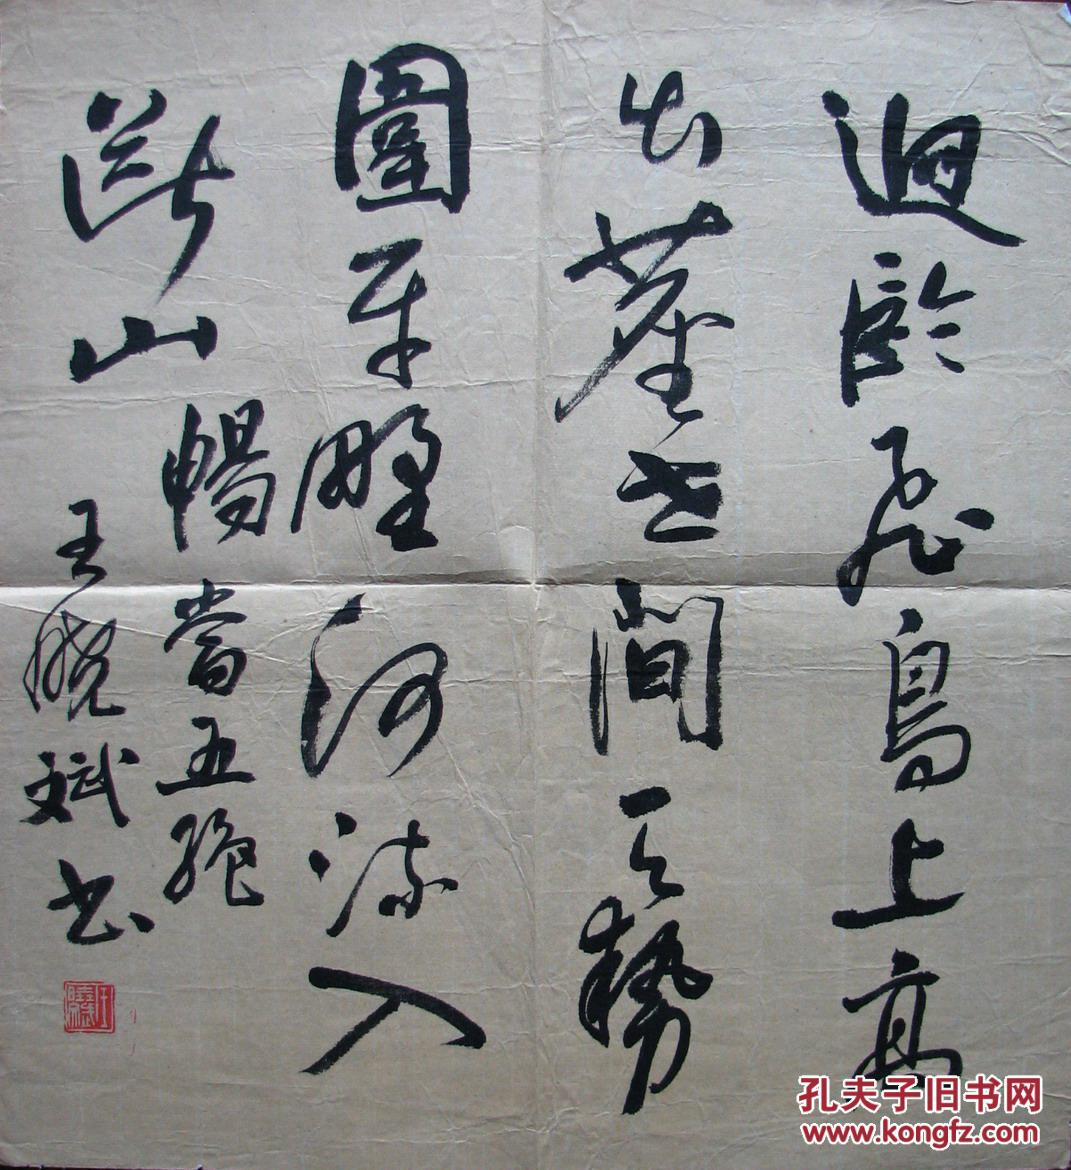 迥臨飛鳥上高
出塵世間天勢
圍平野河流入
斷山
暢當五絕
王曉斌書
孔夫子旧书网
www.kongfz.com